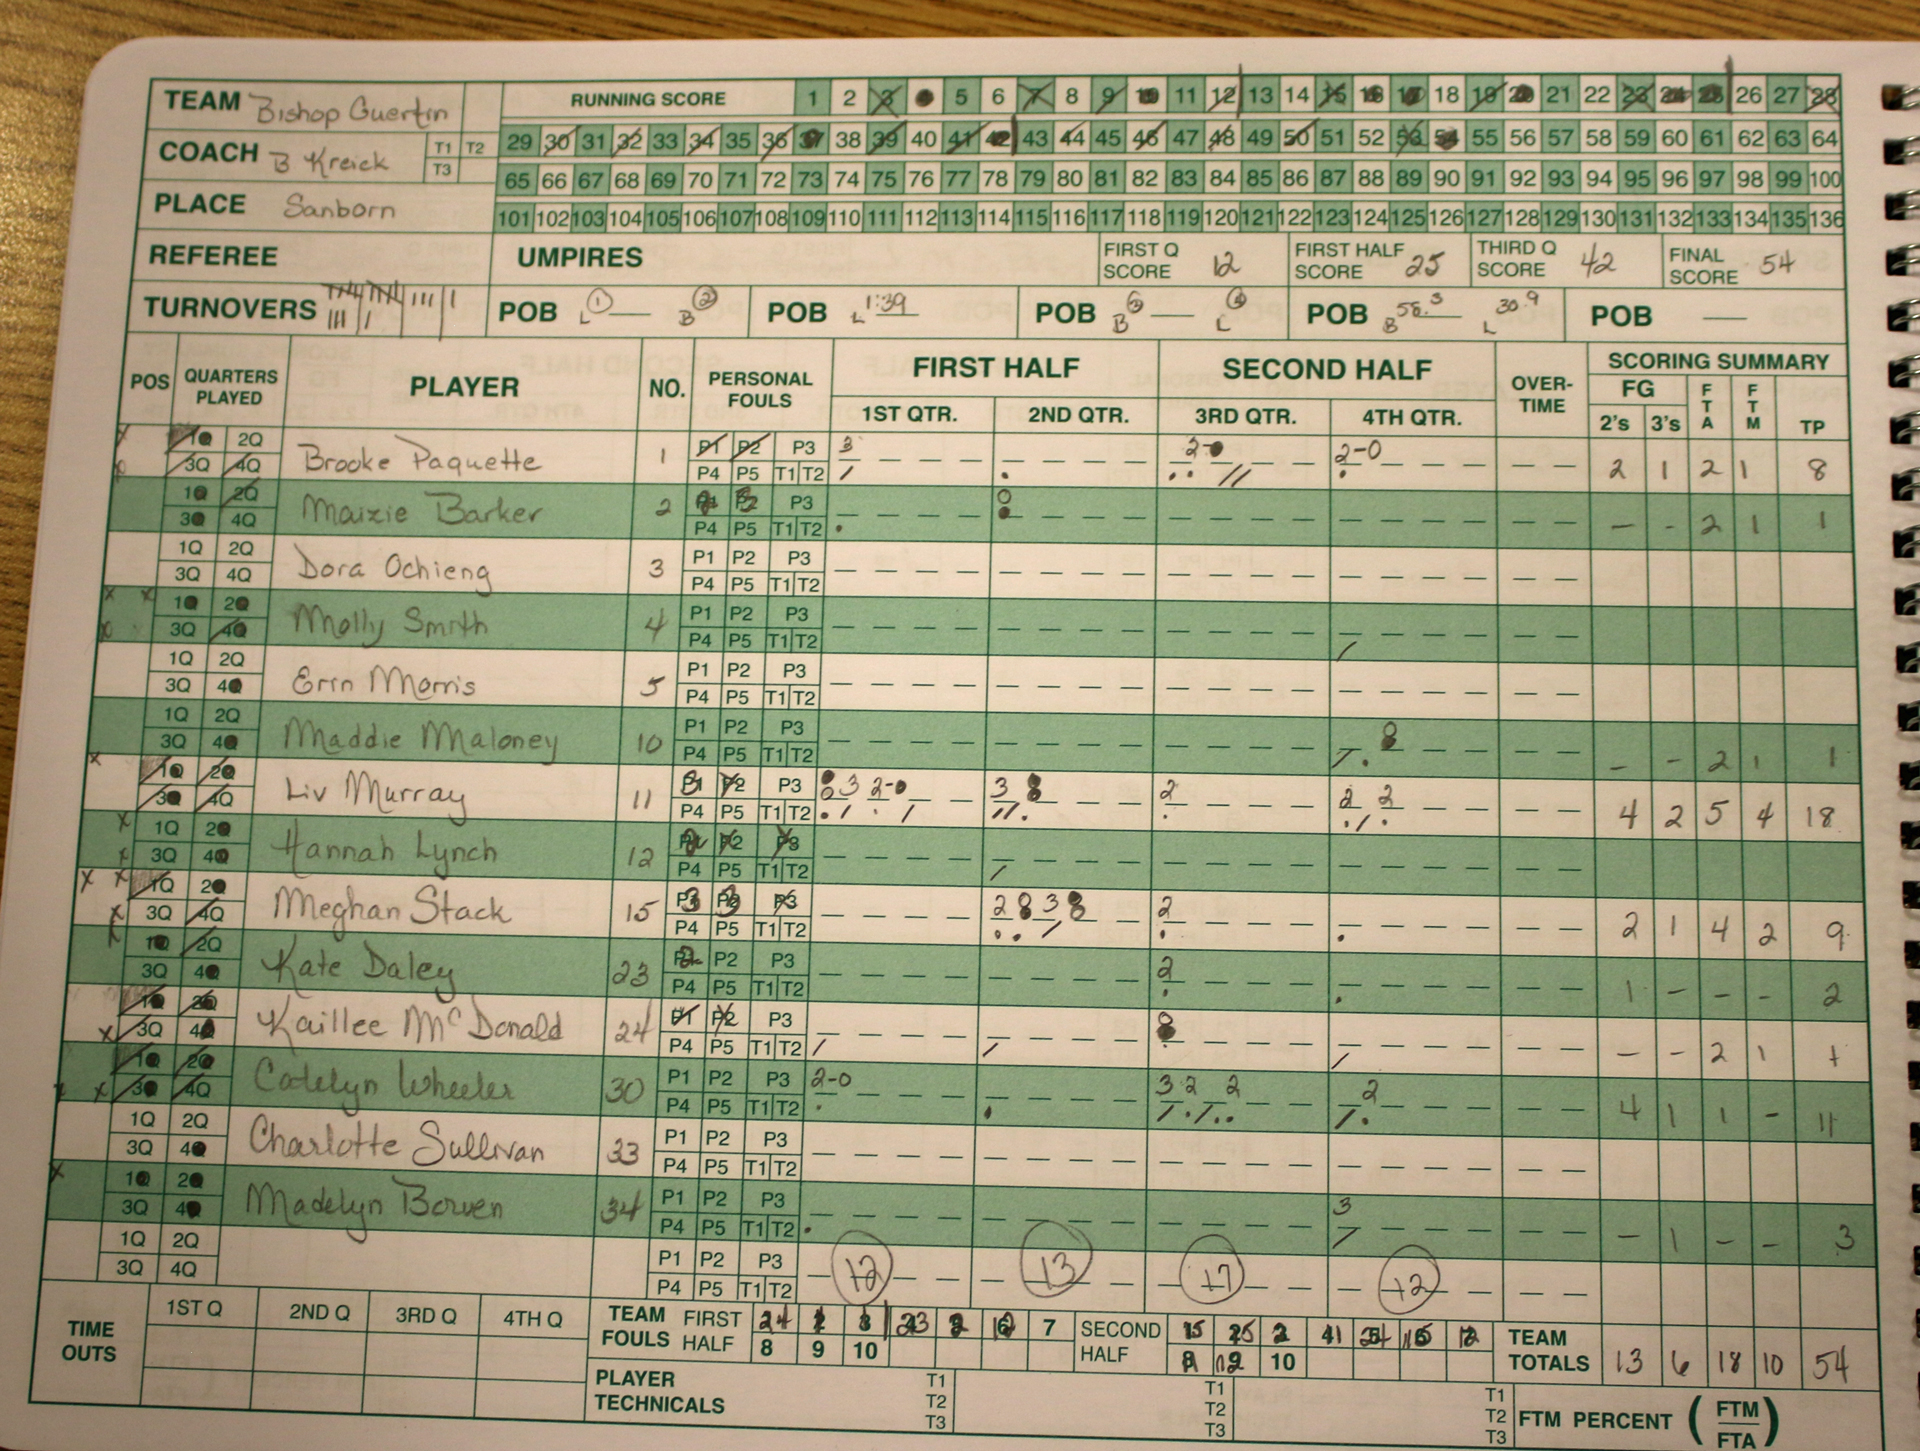 TEAM Bishop Guertin
RUNNING SCORE 1 2 3 4 5 6 7 8 9 10 11 12 13 14 15 16 17 18 19 20 21 22 23 24 25 26 27 28
COACH B Kreick T1 T2 T3
29 30 31 32 33 34 35 36 37 38 39 40 41 42 43 44 45 46 47 48 49 50 51 52 53 54 55 56 57 58 59 60 61 62 63 64
65 66 67 68 69 70 71 72 73 74 75 76 77 78 79 80 81 82 83 84 85 86 87 88 89 90 91 92 93 94 95 96 97 98 99 100
PLACE Sanborn
101 102 103 104 105 106 107 108 109 110 111 112 113 114 115 116 117 118 119 120 121 122 123 124 125 126 127 128 129 130 131 132 133 134 135 136
REFEREE UMPIRES FIRST Q SCORE 12 FIRST HALF SCORE 25 THIRD Q SCORE 42 FINAL SCORE 54
TURNOVERS POB L 1 B 2 POB L 1:39 POB B 3 L 4 POB B 58.3 L 30.9 POB
POS QUARTERS PLAYED PLAYER NO. PERSONAL FOULS FIRST HALF SECOND HALF OVER-TIME SCORING SUMMARY
1ST QTR. 2ND QTR. 3RD QTR. 4TH QTR. FG 2's 3's FTA FTM TP
1Q 2Q 3Q 4Q Brooke Paquette 1 P1 P2 P3 P4 P5 T1 T2 3 2-0 2-0 2 1 2 1 8
1Q 2Q 3Q 4Q Maizie Barker 2 P1 P2 P3 P4 P5 T1 T2 - - 2 1 1
1Q 2Q 3Q 4Q Dora Ochieng 3 P1 P2 P3 P4 P5 T1 T2
1Q 2Q 3Q 4Q Molly Smith 4 P1 P2 P3 P4 P5 T1 T2
1Q 2Q 3Q 4Q Erin Morris 5 P1 P2 P3 P4 P5 T1 T2
1Q 2Q 3Q 4Q Maddie Maloney 10 P1 P2 P3 P4 P5 T1 T2 - - 2 1 1
1Q 2Q 3Q 4Q Liv Murray 11 P1 P2 P3 P4 P5 T1 T2 3 2-0 3 2 2 2 4 2 5 4 18
1Q 2Q 3Q 4Q Hannah Lynch 12 P1 P2 P3 P4 P5 T1 T2
1Q 2Q 3Q 4Q Meghan Stack 15 P1 P2 P3 P4 P5 T1 T2 2 3 2 2 1 4 2 9
1Q 2Q 3Q 4Q Kate Daley 23 P1 P2 P3 P4 P5 T1 T2 2 1 - - - 2
1Q 2Q 3Q 4Q Kaillee McDonald 24 P1 P2 P3 P4 P5 T1 T2 - - 2 1 1
1Q 2Q 3Q 4Q Catelyn Wheeler 30 P1 P2 P3 P4 P5 T1 T2 2-0 3 2 2 2 4 1 1 - 11
1Q 2Q 3Q 4Q Charlotte Sullivan 33 P1 P2 P3 P4 P5 T1 T2
1Q 2Q 3Q 4Q Madelyn Bowen 34 P1 P2 P3 P4 P5 T1 T2 3 - 1 - - 3
1Q 2Q 3Q 4Q P1 P2 P3 P4 P5 T1 T2 12 13 17 12
TIME OUTS 1ST Q 2ND Q 3RD Q 4TH Q
TEAM FOULS FIRST HALF 7 8 9 10 SECOND HALF 10
TEAM TOTALS 13 6 18 10 54
PLAYER TECHNICALS T1 T2 T3 T1 T2 T3 T1 T2 T3 FTM PERCENT (FTM FTA)